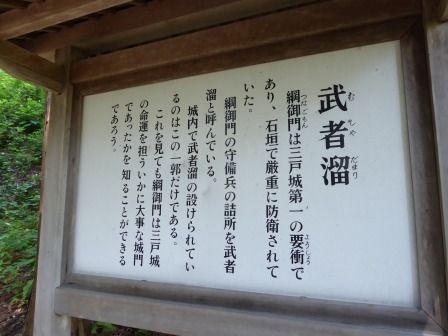 武者溜
むしゃだまり
綱御門は三戸城第一の要衝で
つなごもん
ようしょう
あり、石垣で厳重に防衛されて
いた。
綱御門の守備兵の詰所を武者
溜と呼んでいる。
城内で武者溜の設けられてい
るのはこの一郭だけである。
これを見ても綱御門は三戸城
の命運を担ういかに大事な城門
であったかを知ることができる
であろう。